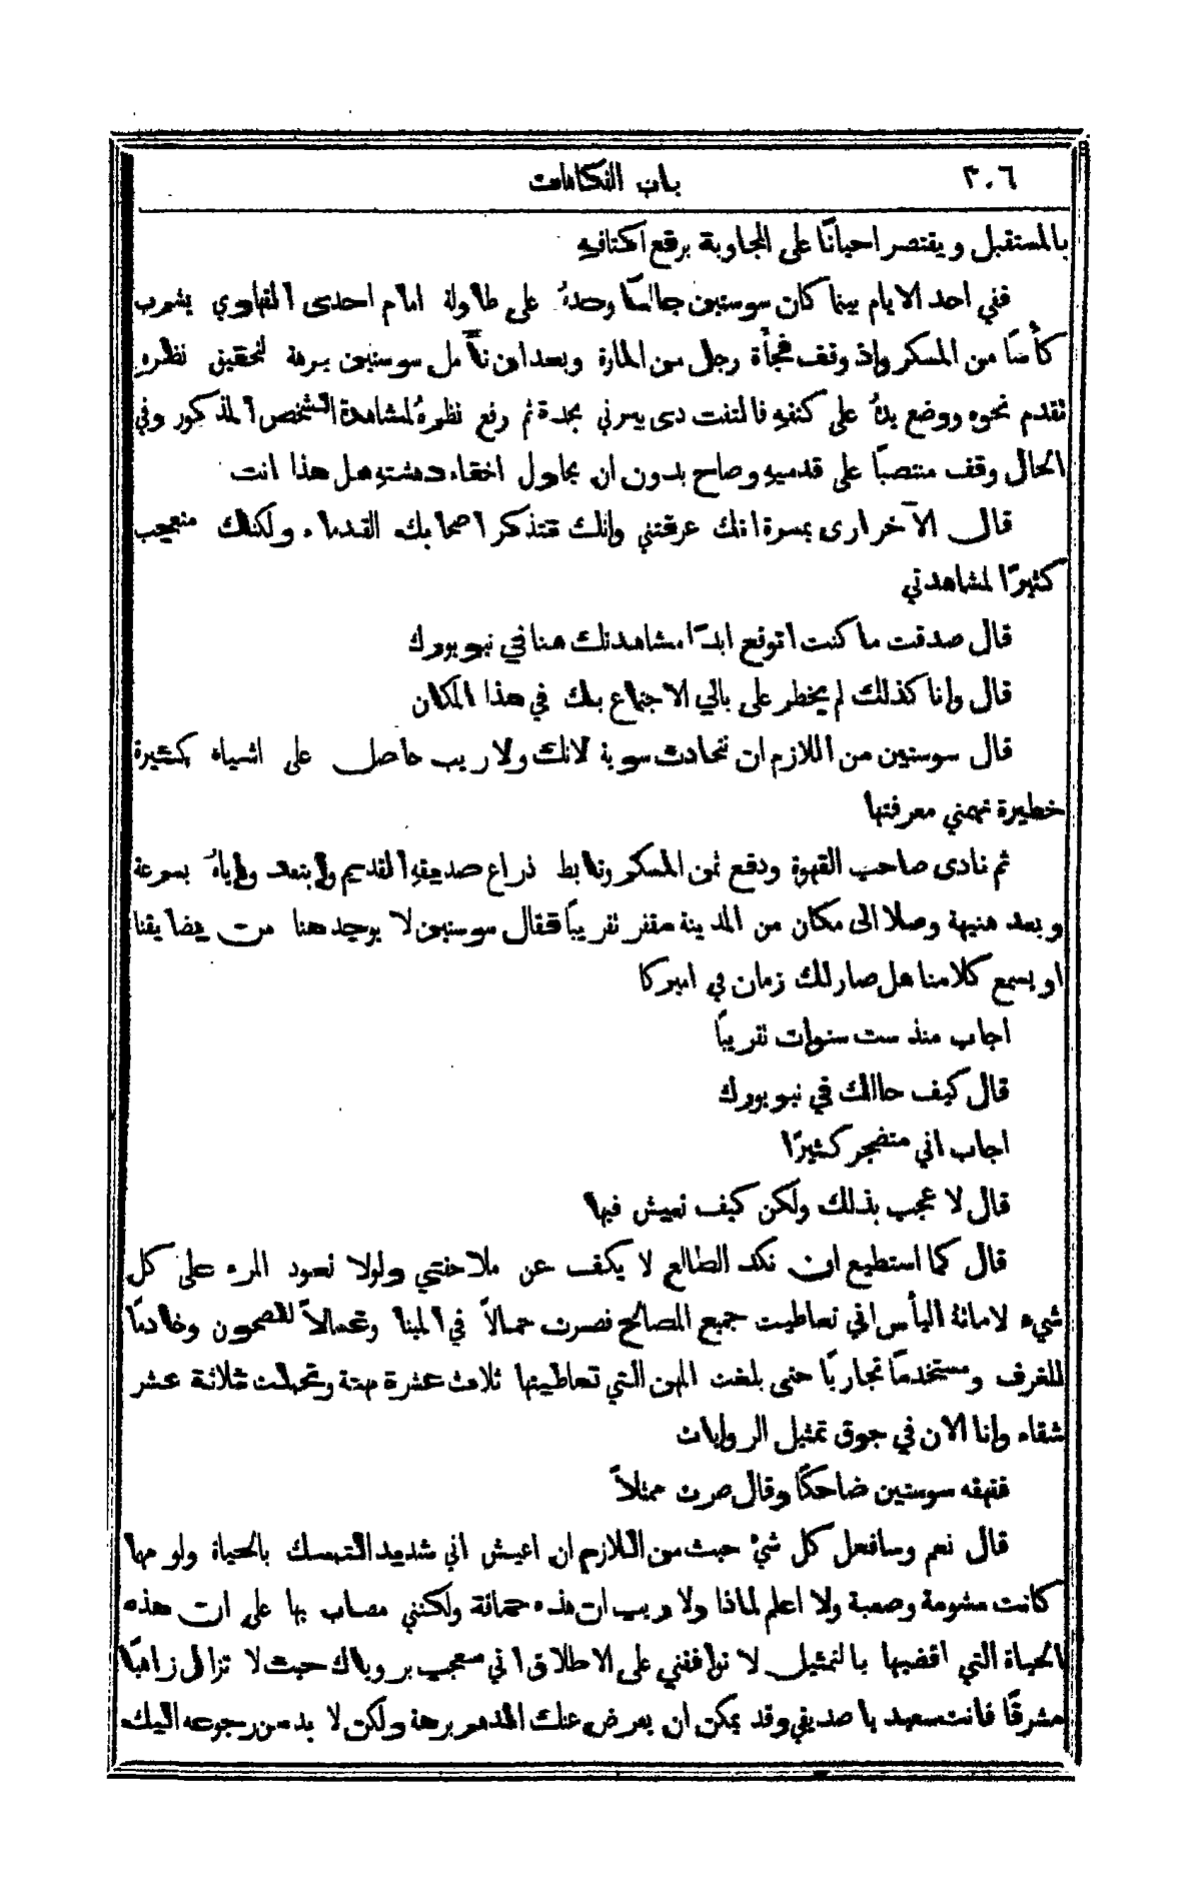 ٣٠٦
باب الفكاهات
بالمستقبل ويقتصر احيانًا على المجاوبة برفع اكتافهِ
ففي احد الايام بينما كان سوستين جالسًا وحدهُ على طاولة امام احدى القهاوي يشرب
كأسًا من المسكر وإذ وقف فجأة رجل من المارة وبعد ان تأمل سوستين برهة لتحقيق نظرهِ
تقدم نحوه ووضع يدهُ على كتفهِ فالتفت دى يسرني بحدة ثم رفع نظرهُ لمشاهدة الشخص المذكور وفي
الحال وقف منتصبًا على قدميهِ وصاح بدون ان يحاول اخفاء دهشتهِ هل هذا انت
قال الآخر ارى بمسرة انك عرفتني وإنك تتذكر اصحابك القدماء ولكنك متعجب
كثيرًا لمشاهدتي
قال صدقت ما كنت اتوقع ابدًا مشاهدتك هنا في نيويورك
قال وانا كذلك لم يخطر على بالي الاجتماع بك في هذا المكان
قال سوستين من اللازم ان نتحادث سوية لانك ولا ريب حاصل على اشياء كثيرة
خطيرة تهمني معرفتها
ثم نادى صاحب القهوة ودفع ثمن المسكر وتأبط ذراع صديقهِ القديم وابتعد وإياهُ بسرعة
وبعد هنيهة وصلا الى مكان من المدينة مقفر تقريبًا فقال سوستين لا يوجد هنا من يضايقنا
او يسمع كلامنا هل صار لك زمان في اميركا
اجاب منذ ست سنوات تقريبًا
قال كيف حالك في نيويورك
اجاب اني متضجر كثيرًا
قال لا عجب بذلك ولكن كيف تعيش فيها
قال كما استطيع ان نكد الطالع لا يكف عن ملاحقتي ولولا تعود المرء على كل
شيء لاماتهُ اليأس اني تعاطيت جميع المصالح فصرت حمالاً في المينا وغسالاً للصحون وخادمًا
للغرف ومستخدمًا تجاريًا حتى بلغت المهن التي تعاطيتها ثلاث عشرة مهنة وتحملت ثلاثة عشر
شقاء وانا الان في جوق تمثيل الروايات
فقهقه سوستين ضاحكًا وقال صرت ممثلاً
قال نعم وسافعل كل شيءٍ حيث من اللازم ان اعيش اني شديد التمسك بالحياة ولو مهما
كانت مشومة وصعبة ولا اعلم لماذا ولا ريب ان هذه حماقة ولكنني مصاب بها على ان هذه
الحياة التي اقضيها بالتمثيل لا توافقني على الاطلاق اني متعجب برؤياك حيث لا تزال زاهيًا
مشرقًا فانت سعيد يا صديقي وقد يمكن ان يعرض عنك الدهر برهة ولكن لا بد من رجوعه اليك